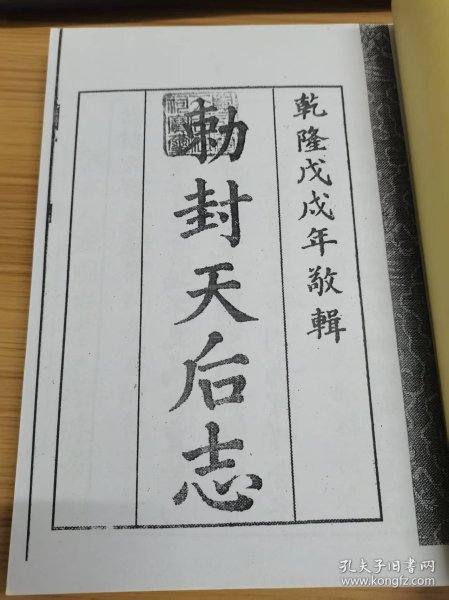 乾隆戊戌年敬輯
勅封天后志
孔夫子旧书网
www.kongfz.com